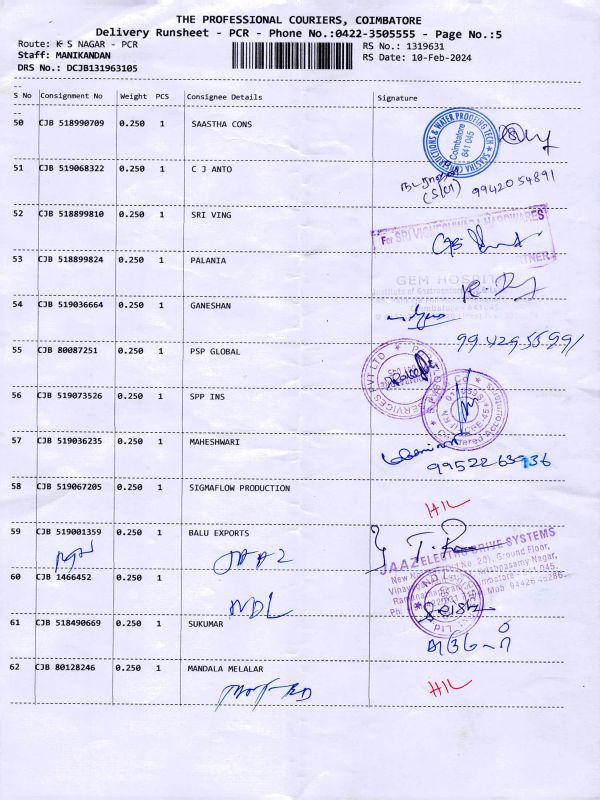 THE PROFESSIONAL COURIERS, COIMBATORE
Delivery Runsheet - PCR - Phone No.:0422-3505555 - Page No.:5
Route: K S NAGAR - PCR
RS No.: 1319631
Staff: MANIKANDAN
RS Date: 10-Feb-2024
DRS No.: DCJB131963105
S No Consignment No Weight PCS Consignee Details Signature
50 CJB 518990709 0.250 1 SAASTHA CONS
Coimbatore
641 045
51 CJB 519068322 0.250 1 C J ANTO
9942054891
52 CJB 518899810 0.250 1 SRI VING
For SRI VIGHESHWARA HARDWARES
PARTNER
53 CJB 518899824 0.250 1 PALANIA
GEM HOSPITAL
54 CJB 519036664 0.250 1 GANESHAN
55 CJB 80087251 0.250 1 PSP GLOBAL
SERVICES PVT LTD
56 CJB 519073526 0.250 1 SPP INS
57 CJB 519036235 0.250 1 MAHESHWARI
9952263936
58 CJB 519067205 0.250 1 SIGMAFLOW PRODUCTION
H/L
59 CJB 519001359 0.250 1 BALU EXPORTS
JAAZ
JAAZ ELECTRO DRIVE SYSTEMS
60 CJB 1466452 0.250 1
NDL
61 CJB 518490669 0.250 1 SUKUMAR
62 CJB 80128246 0.250 1 MANDALA MELALAR
H/L